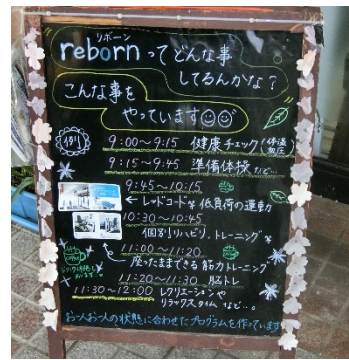 リボーン
rebornって どんな事
してるんかな?
こんな事を
やっています
例
9:00〜9:15 健康チェック(体温
血圧)
9:15〜9:45 準備体操など…
9:45〜10:15
←レッドコード 低負荷の運動
10:30〜10:45
個別リハビリ、トレーニング
11:00〜11:20
座ったままできる 筋力トレーニング
11:20〜11:30 脳トレ
11:30〜12:00 レクリエーションや
リラックスタイム など…。
お一人お一人の状態に合わせたプログラムを作っています